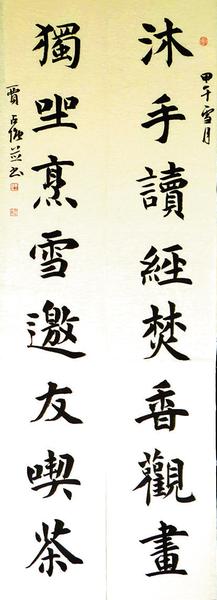 甲午雪月
沐手讀經焚香觀畫
獨坐烹雪邀友喫茶
賈占並書